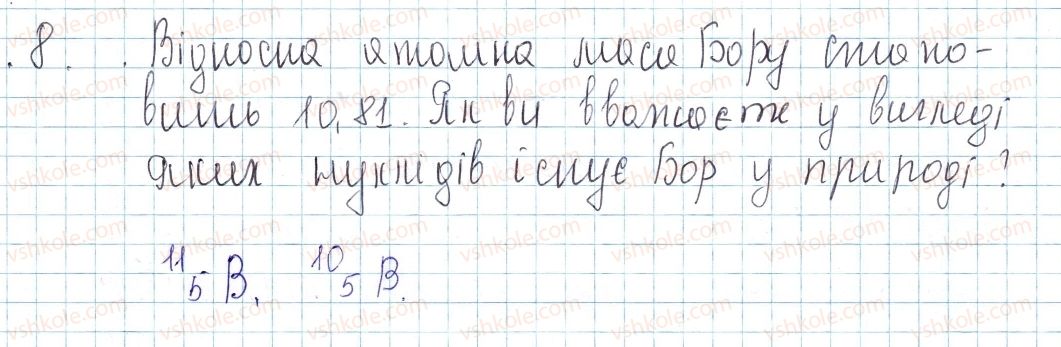 8. Відносна атомна маса Бору стано-
вить 10,81. Як ви вважаєте у вигляді
яких нуклідів існує Бор у природі?
¹¹₅B, ¹⁰₅B.